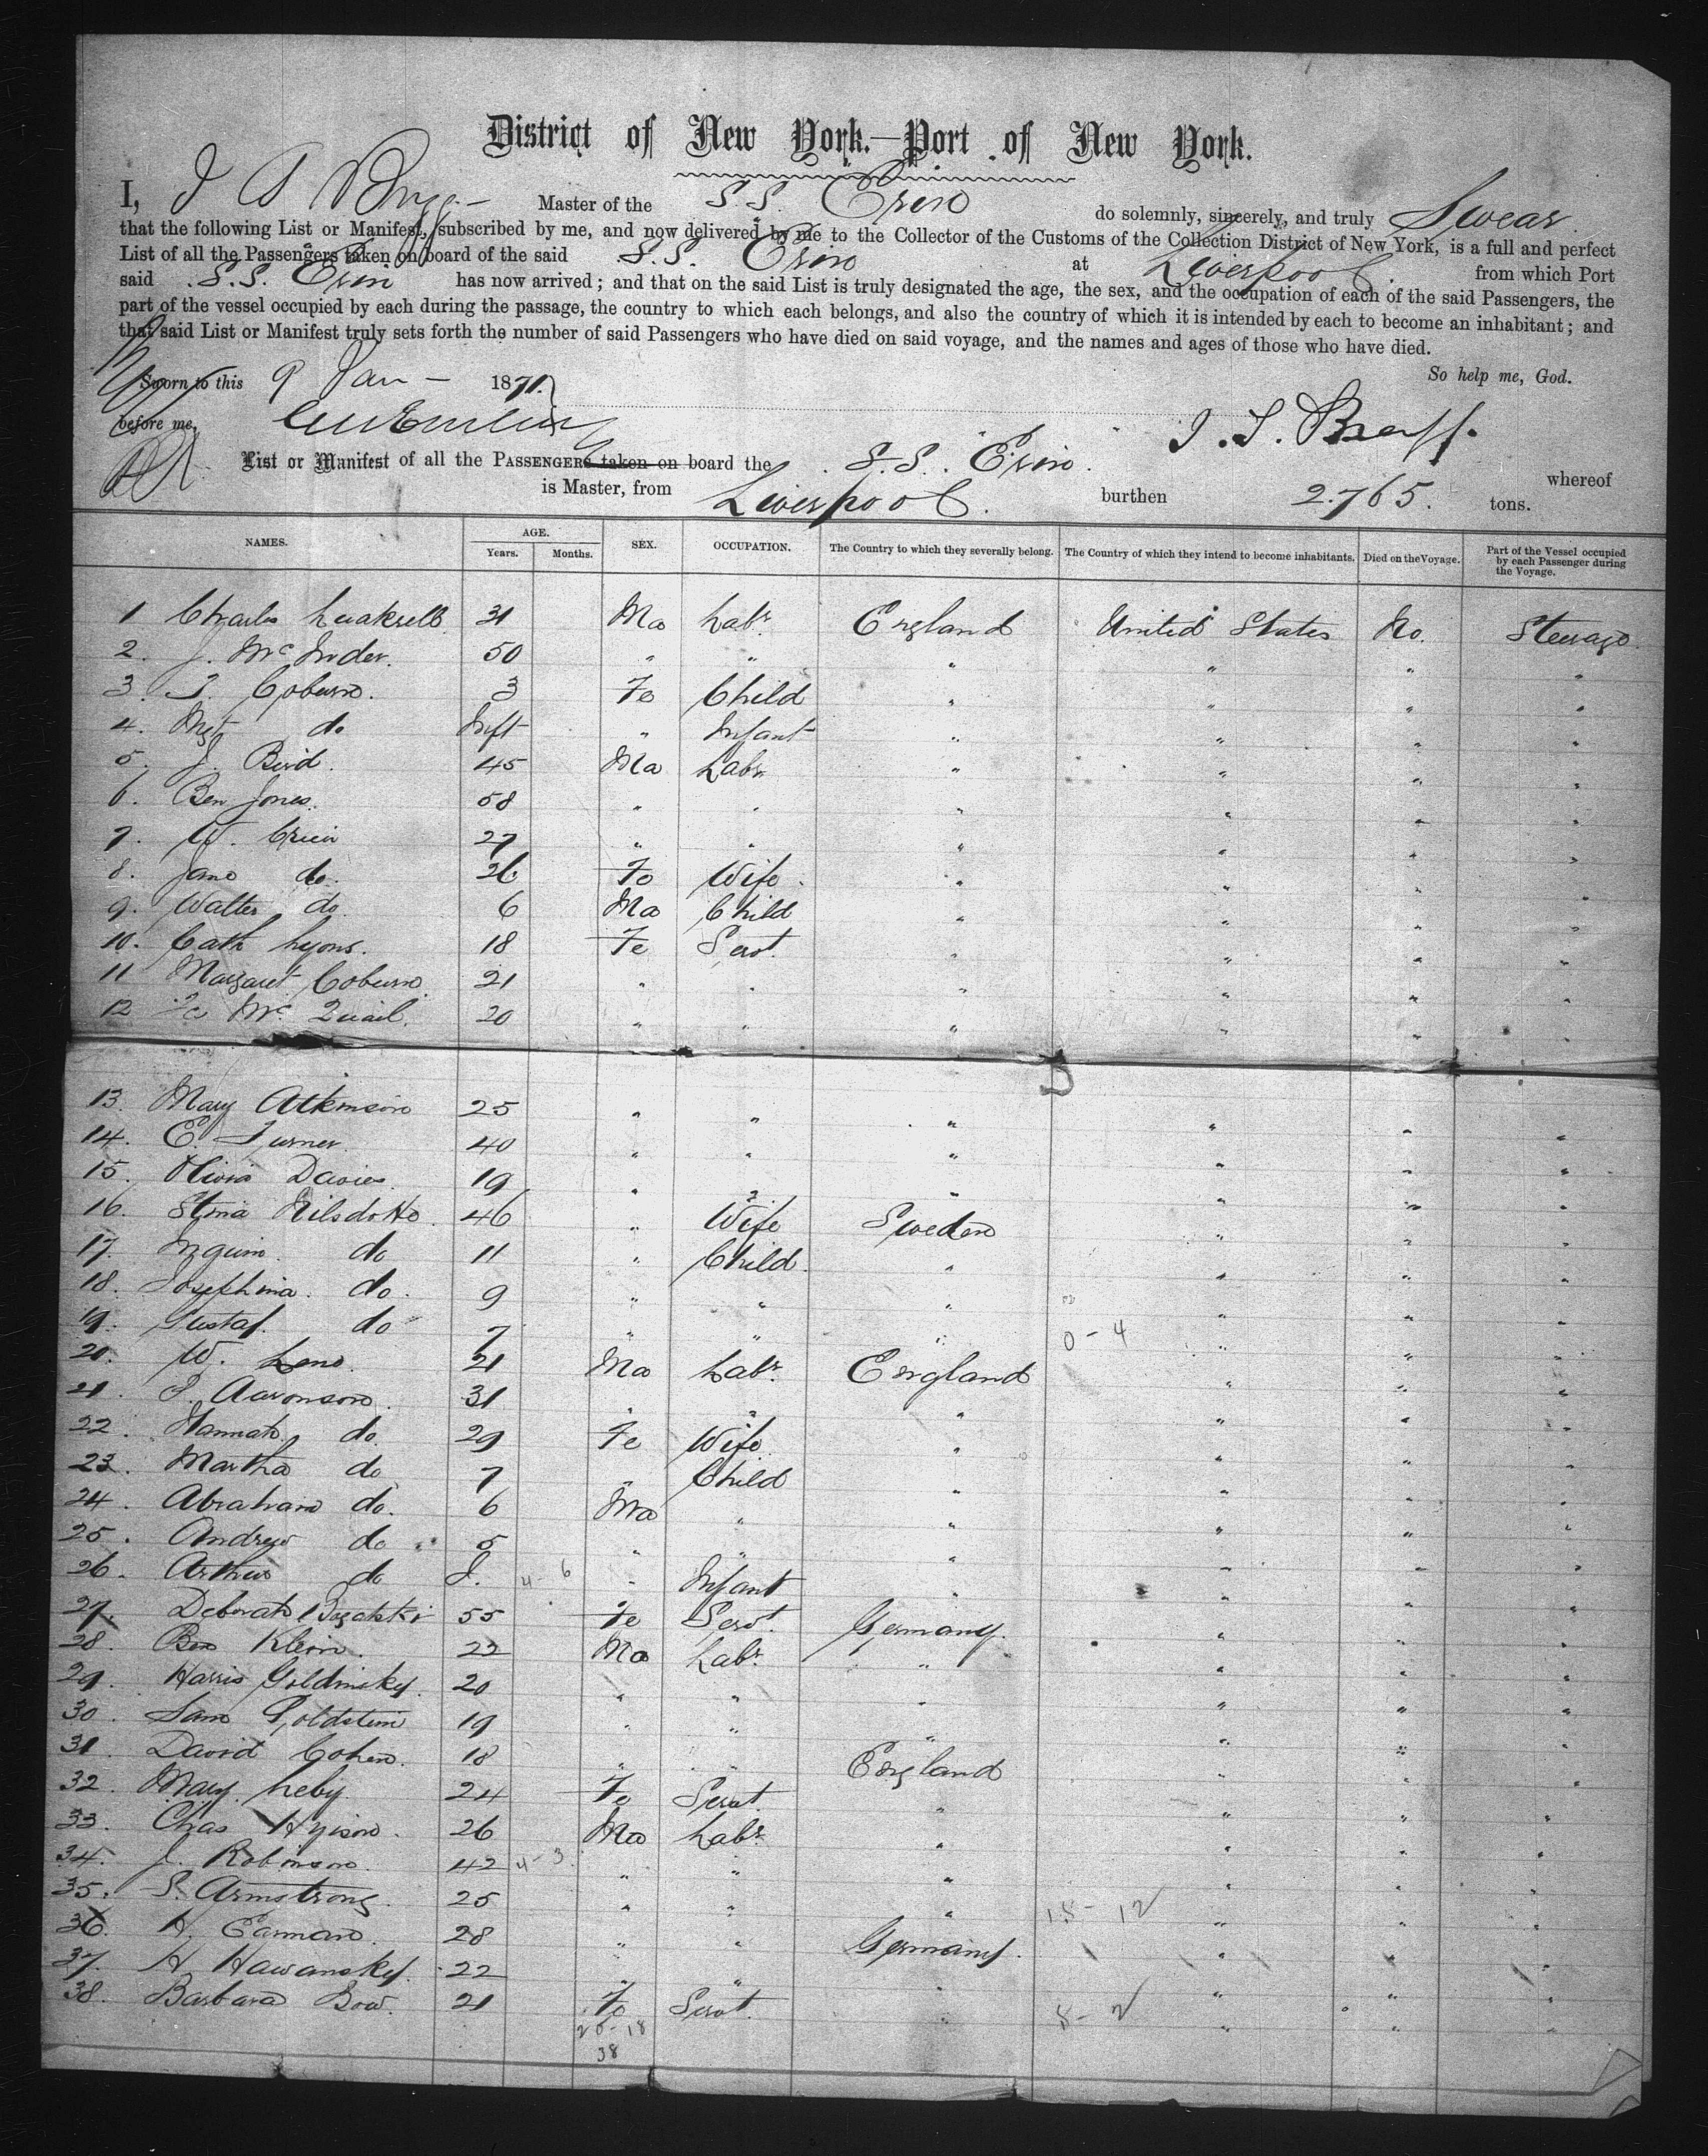 District of New York.—Port of New York.
I, Master of the S.S. Erin do solemnly, sincerely, and truly Swear
that the following List or Manifest, subscribed by me, and now delivered by me to the Collector of the Customs of the Collection District of New York, is a full and perfect
List of all the Passengers taken on board of the said S.S. Erin at Liverpool from which Port
said S.S. Erin has now arrived; and that on the said List is truly designated the age, the sex, and the occupation of each of the said Passengers, the
part of the vessel occupied by each during the passage, the country to which each belongs, and also the country of which it is intended by each to become an inhabitant; and
that said List or Manifest truly sets forth the number of said Passengers who have died on said voyage, and the names and ages of those who have died.
So help me, God.
Sworn to this 9 Jan - 1871
before me,
List or Manifest of all the PASSENGERS taken on board the S.S. Erin. whereof
is Master, from Liverpool. burthen 2.765. tons.
NAMES. AGE. Years. Months. SEX. OCCUPATION. The Country to which they severally belong. The Country of which they intend to become inhabitants. Died on the Voyage. Part of the Vessel occupied by each Passenger during the Voyage.
1 Charles 31 Ma Labr. England United States No. Steerage
2. J. Mc 50 " " " " " "
3. Coburn. 3 Fe Child " " " "
4. Mgt do Inft " Infant " " " "
5. J. Bird. 45 Ma Labr " " " "
6. Ben Jones. 58 " " " " " "
7. W. 27 " " " " " "
8. Jane do. 26 Fe Wife " " " "
9. Walter do. 6 Ma Child " " " "
10. Cath Lyons. 18 Fe Servt. " " " "
11 Margaret Coburn 21 " " " " " "
12 Mc Quail. 20 " " " " " "
13. Mary Atkinson 25 " " " " " "
14. E. Turner 40 " " " " " "
15. Olivia Davies. 19 " " " " " "
16. Stina Nilsdotto. 46 " Wife Sweden " " "
17. do 11 " Child. " " " "
18. Josephina. do. 9 " " " " " "
19. Gustaf. do 7 " " " 0 - 4 " " "
20. W. 21 Ma Labr. England " " "
21. Aaronson. 31 " " " " " "
22. Hannah. do. 29 Fe Wife " " " "
23. Martha do 7 " Child " " " "
24. Abraham do. 6 Ma " " " " "
25. Andrew do 5 " " " " " "
26. Arthur do I. 4 - 6 " Infant " " " "
27. Deborah 55 Fe Servt. Germany. " " "
28. Ben Klein. 22 Ma Labr. " " " "
29. Harris Goldinsky. 20 " " " " " "
30. Sam Goldstein 19 " " " " " "
31. David Cohen. 18 " " England " " "
32. Mary 24 Fe Servt. " " " "
33. Chas 26 Ma Labr. " " " "
34. J. Robinson. 42 4 - 3 " " " " " "
35. S. Armstrong. 25 " " " 18 - 12 " " "
36. H. Earman. 28 " " Germany. " " "
37. H. Hawansky. 22 " " " " " "
38. Barbara Bow. 21 Fe Servt. " 8 - 2 " " "
20 - 18
38